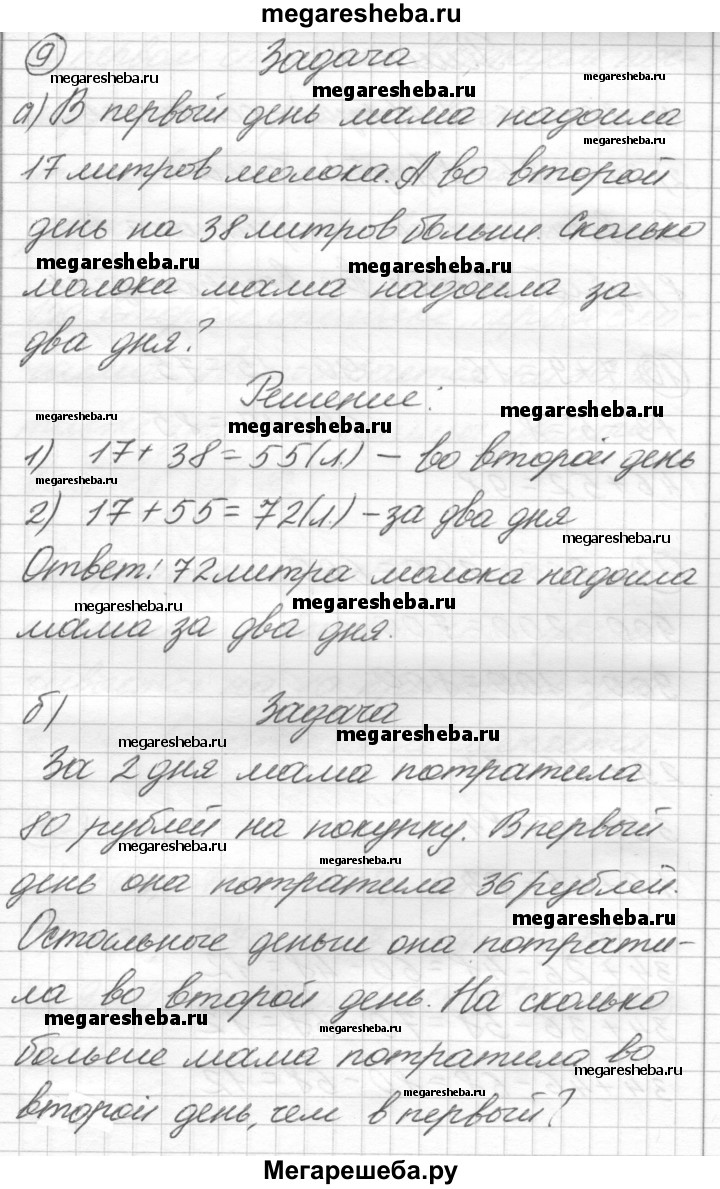 megaresheba.ru
9 Задача
megaresheba.ru megaresheba.ru megaresheba.ru
а) В первый день мама надоила
megaresheba.ru
17 литров молока. А во второй
день на 38 литров больше. Сколько
megaresheba.ru megaresheba.ru
молока мама надоила за
два дня?
Решение:
megaresheba.ru megaresheba.ru megaresheba.ru
1) 17 + 38 = 55 (л.) – во второй день
megaresheba.ru
2) 17 + 55 = 72 (л.) – за два дня
megaresheba.ru
Ответ: 72 литра молока надоила
megaresheba.ru megaresheba.ru
мама за два дня.
б) Задача
megaresheba.ru megaresheba.ru
За 2 дня мама потратила
80 рублей на покупку. В первый
megaresheba.ru megaresheba.ru
день она потратила 36 рублей.
megaresheba.ru
Остальные деньги она потрати-
ла во второй день. На сколько
megaresheba.ru megaresheba.ru
больше мама потратила во
megaresheba.ru megaresheba.ru
второй день, чем в первый?
Мегарешеба.ру